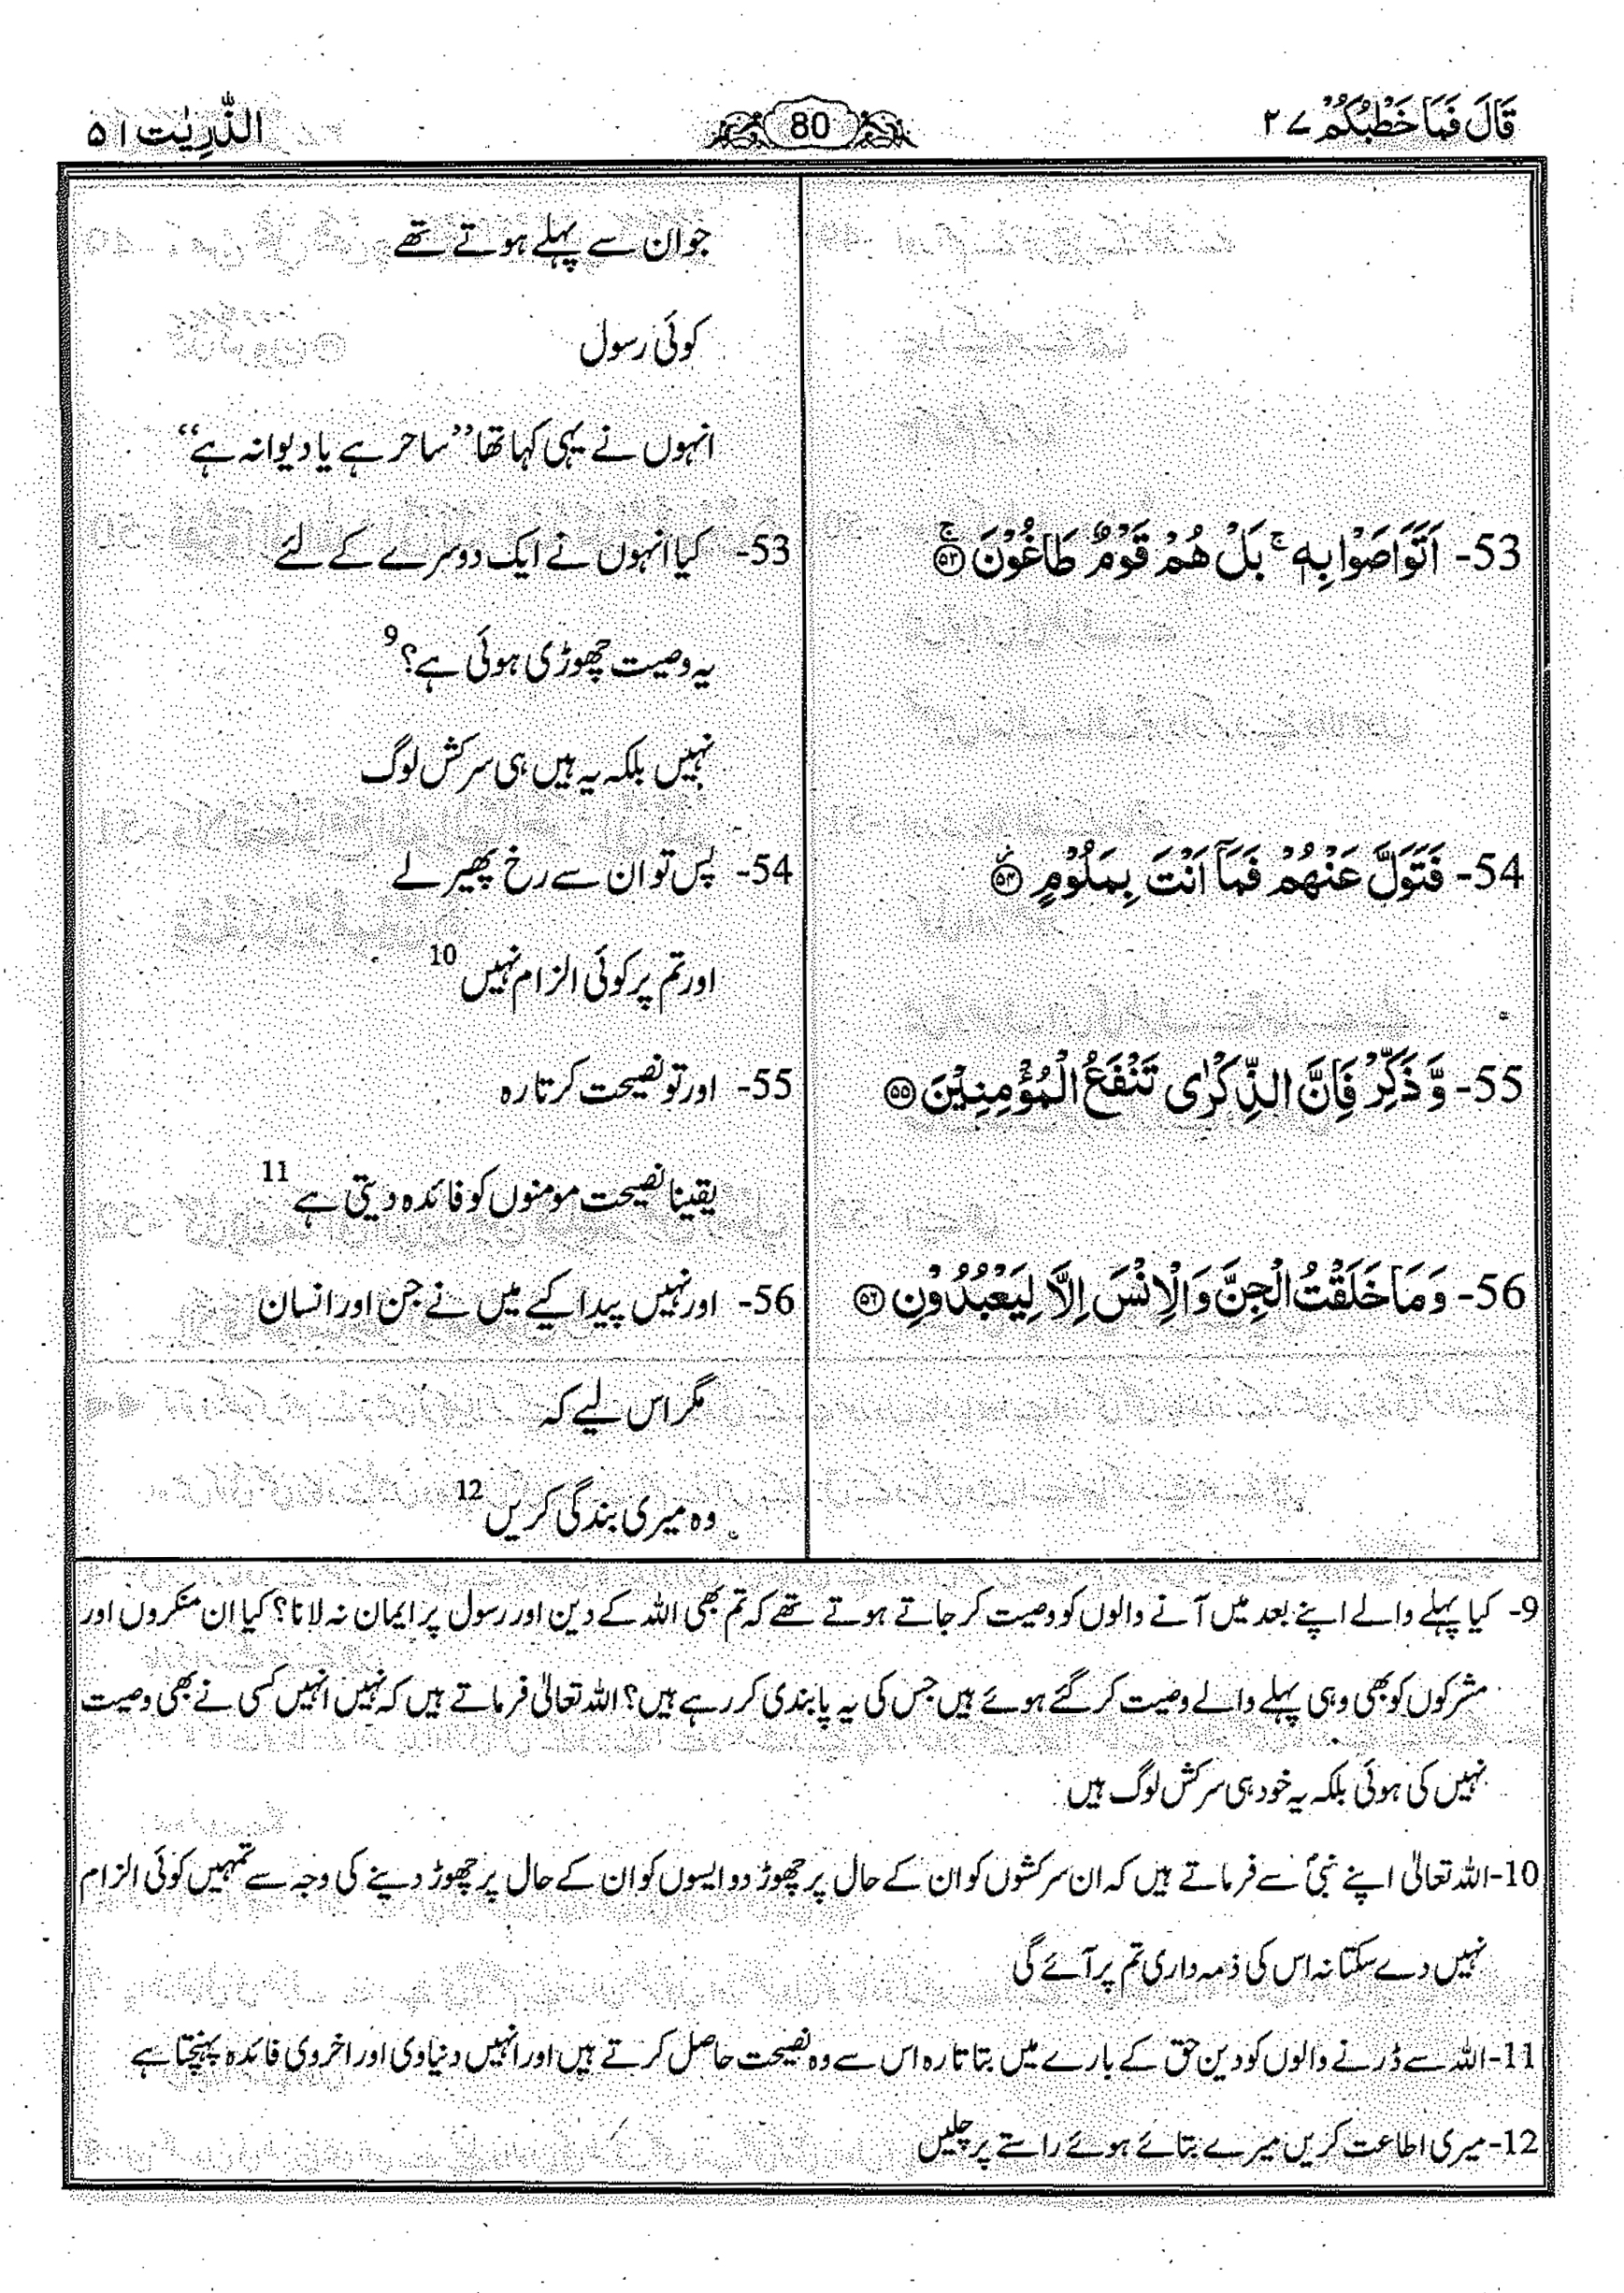 قَالَ فَمَا خَطْبُكُمْ ۲۷
80
الذّٰرِیٰت ۵۱
جو ان سے پہلے ہوتے تھے
کوئی رسول
انہوں نے یہی کہا تھا ’’ساحر ہے یا دیوانہ ہے‘‘
53- اَتَوَاصَوْا بِهٖ ۚ بَلْ هُمْ قَوْمٌ طَاغُوْنَ ۚ﴿۵۳﴾
53- کیا انہوں نے ایک دوسرے کے لئے
یہ وصیت چھوڑی ہوئی ہے؟ 9
نہیں بلکہ یہ ہیں ہی سرکش لوگ
54- فَتَوَلَّ عَنْهُمْ فَمَاۤ اَنْتَ بِمَلُوْمٍ ﴿۵۴﴾
54- پس تو ان سے رخ پھیر لے
اور تم پر کوئی الزام نہیں 10
55- وَّ ذَكِّرْ فَاِنَّ الذِّكْرٰى تَنْفَعُ الْمُؤْمِنِيْنَ ﴿۵۵﴾
55- اور تو نصیحت کرتا رہ
یقینا نصیحت مومنوں کو فائدہ دیتی ہے 11
56- وَ مَا خَلَقْتُ الْجِنَّ وَ الْاِنْسَ اِلَّا لِيَعْبُدُوْنِ ﴿۵۶﴾
56- اور نہیں پیدا کیے میں نے جن اور انسان
مگر اس لیے کہ
وہ میری بندگی کریں 12
9- کیا پہلے والے اپنے بعد میں آنے والوں کو وصیت کر جاتے ہوتے تھے کہ تم بھی اللہ کے دین اور رسول پر ایمان نہ لانا؟ کیا ان منکروں اور
مشرکوں کو بھی وہی پہلے والے وصیت کر گئے ہوئے ہیں جس کی یہ پابندی کر رہے ہیں؟ اللہ تعالیٰ فرماتے ہیں کہ نہیں انہیں کسی نے بھی وصیت
نہیں کی ہوئی بلکہ یہ خود ہی سرکش لوگ ہیں
10- اللہ تعالیٰ اپنے نبیؐ سے فرماتے ہیں کہ ان سرکشوں کو ان کے حال پر چھوڑ دو ایسوں کو ان کے حال پر چھوڑ دینے کی وجہ سے تمہیں کوئی الزام
نہیں دے سکتا نہ اس کی ذمہ داری تم پر آئے گی
11- اللہ سے ڈرنے والوں کو دین حق کے بارے میں بتاتا رہ اس سے وہ نصیحت حاصل کرتے ہیں اور انہیں دنیاوی اور اخروی فائدہ پہنچتا ہے
12- میری اطاعت کریں میرے بتائے ہوئے راستے پر چلیں